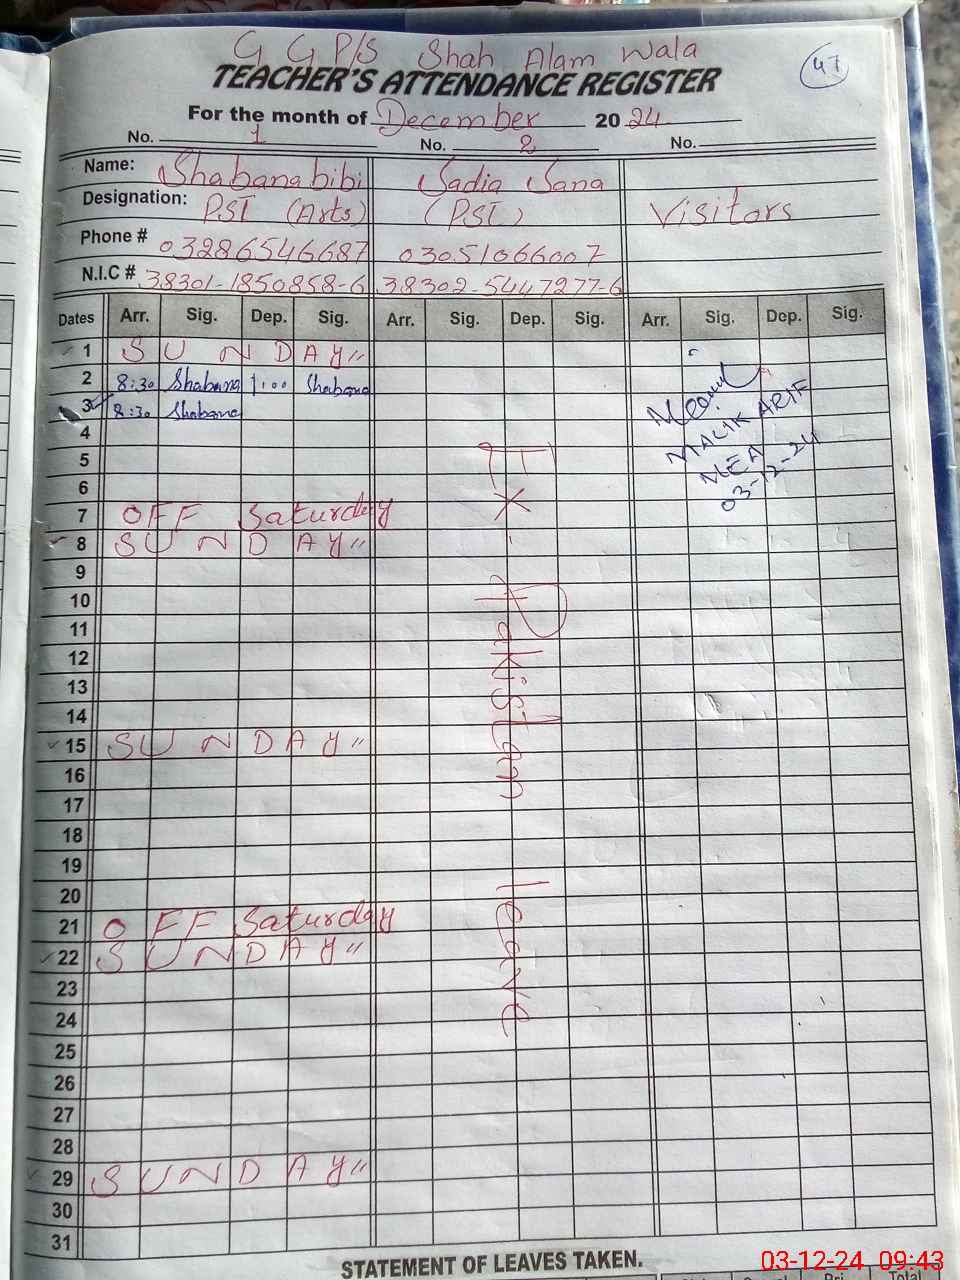 G G P/S Shah Alam Wala
47
TEACHER'S ATTENDANCE REGISTER
For the month of December 20 24
No. 1 No. 2 No.
Name: Shabana bibi Sadia Sana
Designation: PST (Arts) (PST) Visitors
Phone # 03286546687 03051066007
N.I.C # 38301-1850858-6 38302-5447277-6
Dates Arr. Sig. Dep. Sig. Arr. Sig. Dep. Sig. Arr. Sig. Dep. Sig.
1 SUNDAY"
2 8:30 Shabana 1:00 Shabana
3 8:30 Shabana
MALIK ARIF
MEA
03-12-24
4
5
6
7 OFF Saturday
8 SUNDAY"
9
10
11
12
13
14
15 SUNDAY"
16
17
18
19
20
21 OFF Saturday
22 SUNDAY"
23
24
25
26
27
28
29 SUNDAY"
30
31
EX- Pakistan leave
STATEMENT OF LEAVES TAKEN.
Pri Total
03-12-24 09:43